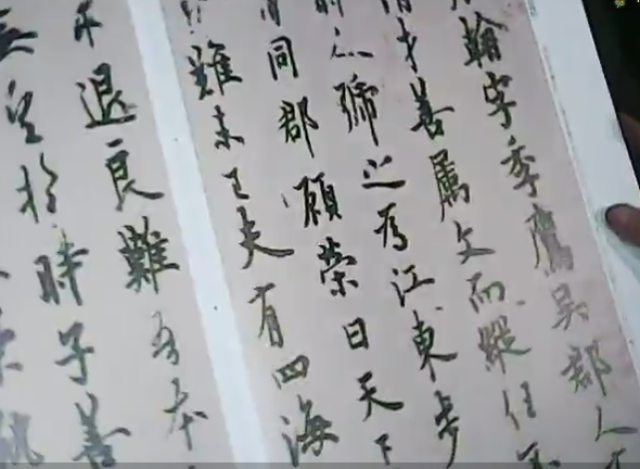 翰字季鷹吳郡人
才善属文而縱任不
人號之為江東步
同郡顧榮曰天下
難未已夫有四海
退良難吾本
無望於時子善